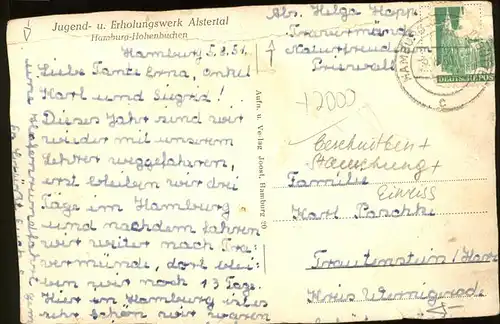 Jugend- u. Erholungswerk Alstertal
Hamburg-Hohenbuchen
Hamburg 5.9.51.
Liebe Tante Erna, onkel
Karl und Sigrid!
Dieses Jahr sind wir
wieder mit unserem
Lehrer weggefahren,
erst bleiben wir drei
Tage im Hamburg
und nachdem fahren
wir weiter nach Tra-
vermünde, dort blei-
ben wir noch 13 Tage.
Hier in Hamburg ist es
sehr schön wir waren
Aufn. u. Verlag Joost, Hamburg 20
Abs. Helga Hopp,
Travermünde
Naturfreunde
Priwall
HAMBURG
DEUTSCHE POST
c
+2000
Beschnitten +
Stauchung +
Eiweiss
Familie
Karl Paschke
Trautenstein/Harz
Kreis Wernigerode